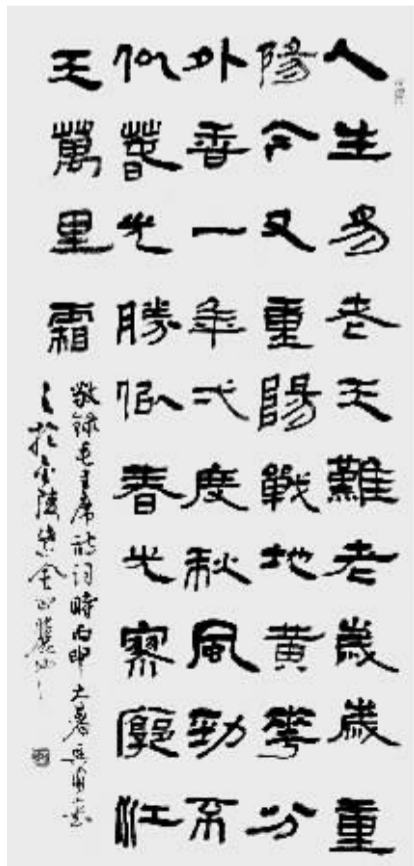 人生易老天難老歲歲重
陽今又重陽戰地黃華分
外香一年弌度秋風勁不
似萅光勝似春光寥廓江
天萬里霜
敬錄毛主席詩詞時丙申大暑
於金陵紫金山麓